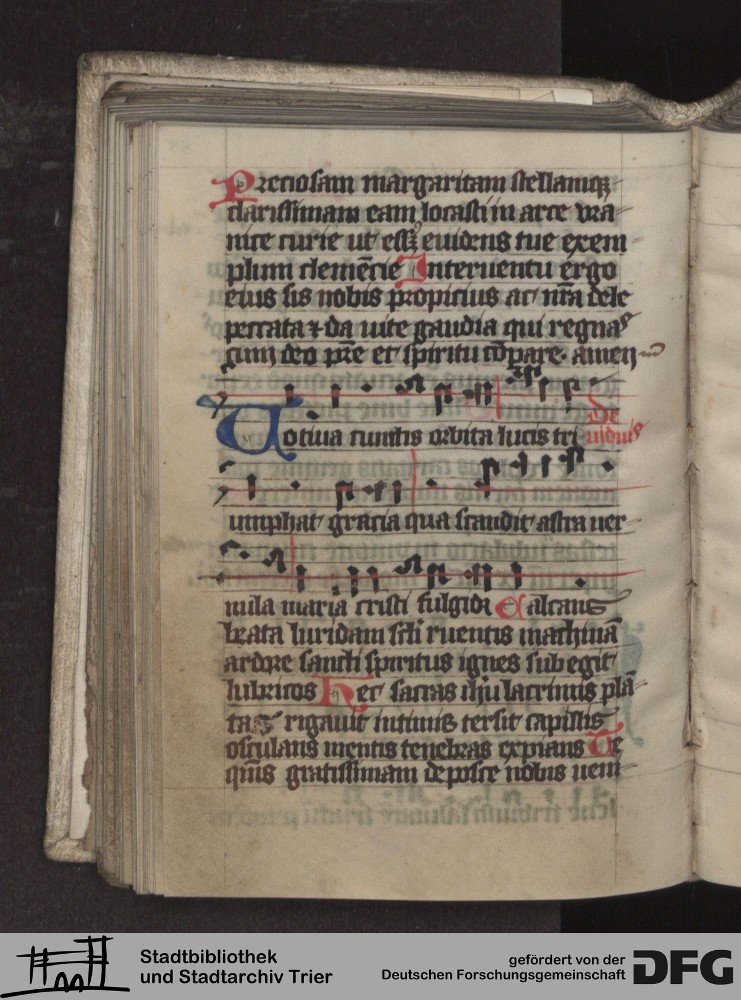 Preciosam margaritam stellamq;
clarissimam eam locasti in arce vra
nice curie ut eēt euidens tue exem
plum clemēcie Interuentu ergo
eius sis nobis propicius ac nr̄a dele
peccata ⁊ da uite gaudia qui regnas
cum deo pr̄e et spiritu cōpare. amen
Uotiua cunctis orbita lucis tri
umphat gracia qua scandit astra uer
nula maria cristi fulgida Calcans
beata luridam scl̄i ruentis machinā
ardore sancti spiritus ignes subegit
lubricos Hec sacras ih̄u lacrimis plā
tas rigauit intimis tersit capillis
osculans mentis tenebras expians Te
qm̄s gratissimam deposce nobis ueni
Stadtbibliothek
und Stadtarchiv Trier
gefördert von der
Deutschen Forschungsgemeinschaft
DFG